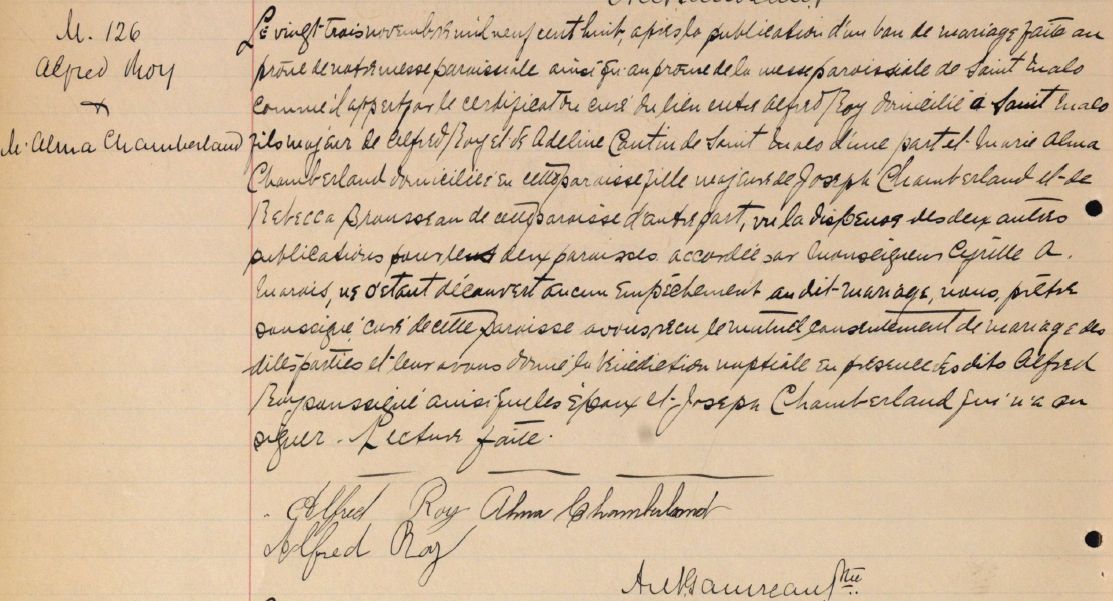 M. 126
Alfred Roy
+
M. Alma Chamberland
Le vingt trois novembre mil neuf cent huit, après la publication d'un ban de mariage faite au
prône de notre messe paroissiale ainsi qu'au prône de la messe paroissiale de Saint Malo
comme il appert par le certificat du curé du lieu entre Alfred Roy domicilié à Saint Malo
fils majeur de Alfred Roy et de Adeline Cantin de Saint Malo d'une part et Marie Alma
Chamberland domiciliée en cette paroisse fille majeure de Joseph Chamberland et de
Rebecca Brousseau de cette paroisse d'autre part, vu la dispense des deux autres
publications pour les deux paroisses accordée par Monseigneur Cyrille A.
Marois, ne s'étant découvert aucun empêchement au dit mariage, nous, prêtre
soussigné, curé de cette paroisse avons reçu le mutuel consentement de mariage des
dites parties et leur avons donné la bénédiction nuptiale en présence des dits Alfred
Roy soussigné ainsi que les époux et Joseph Chamberland qui n'a su
signer. Lecture faite.
Alfred Roy Alma Chamberland
Alfred Roy
Ptre